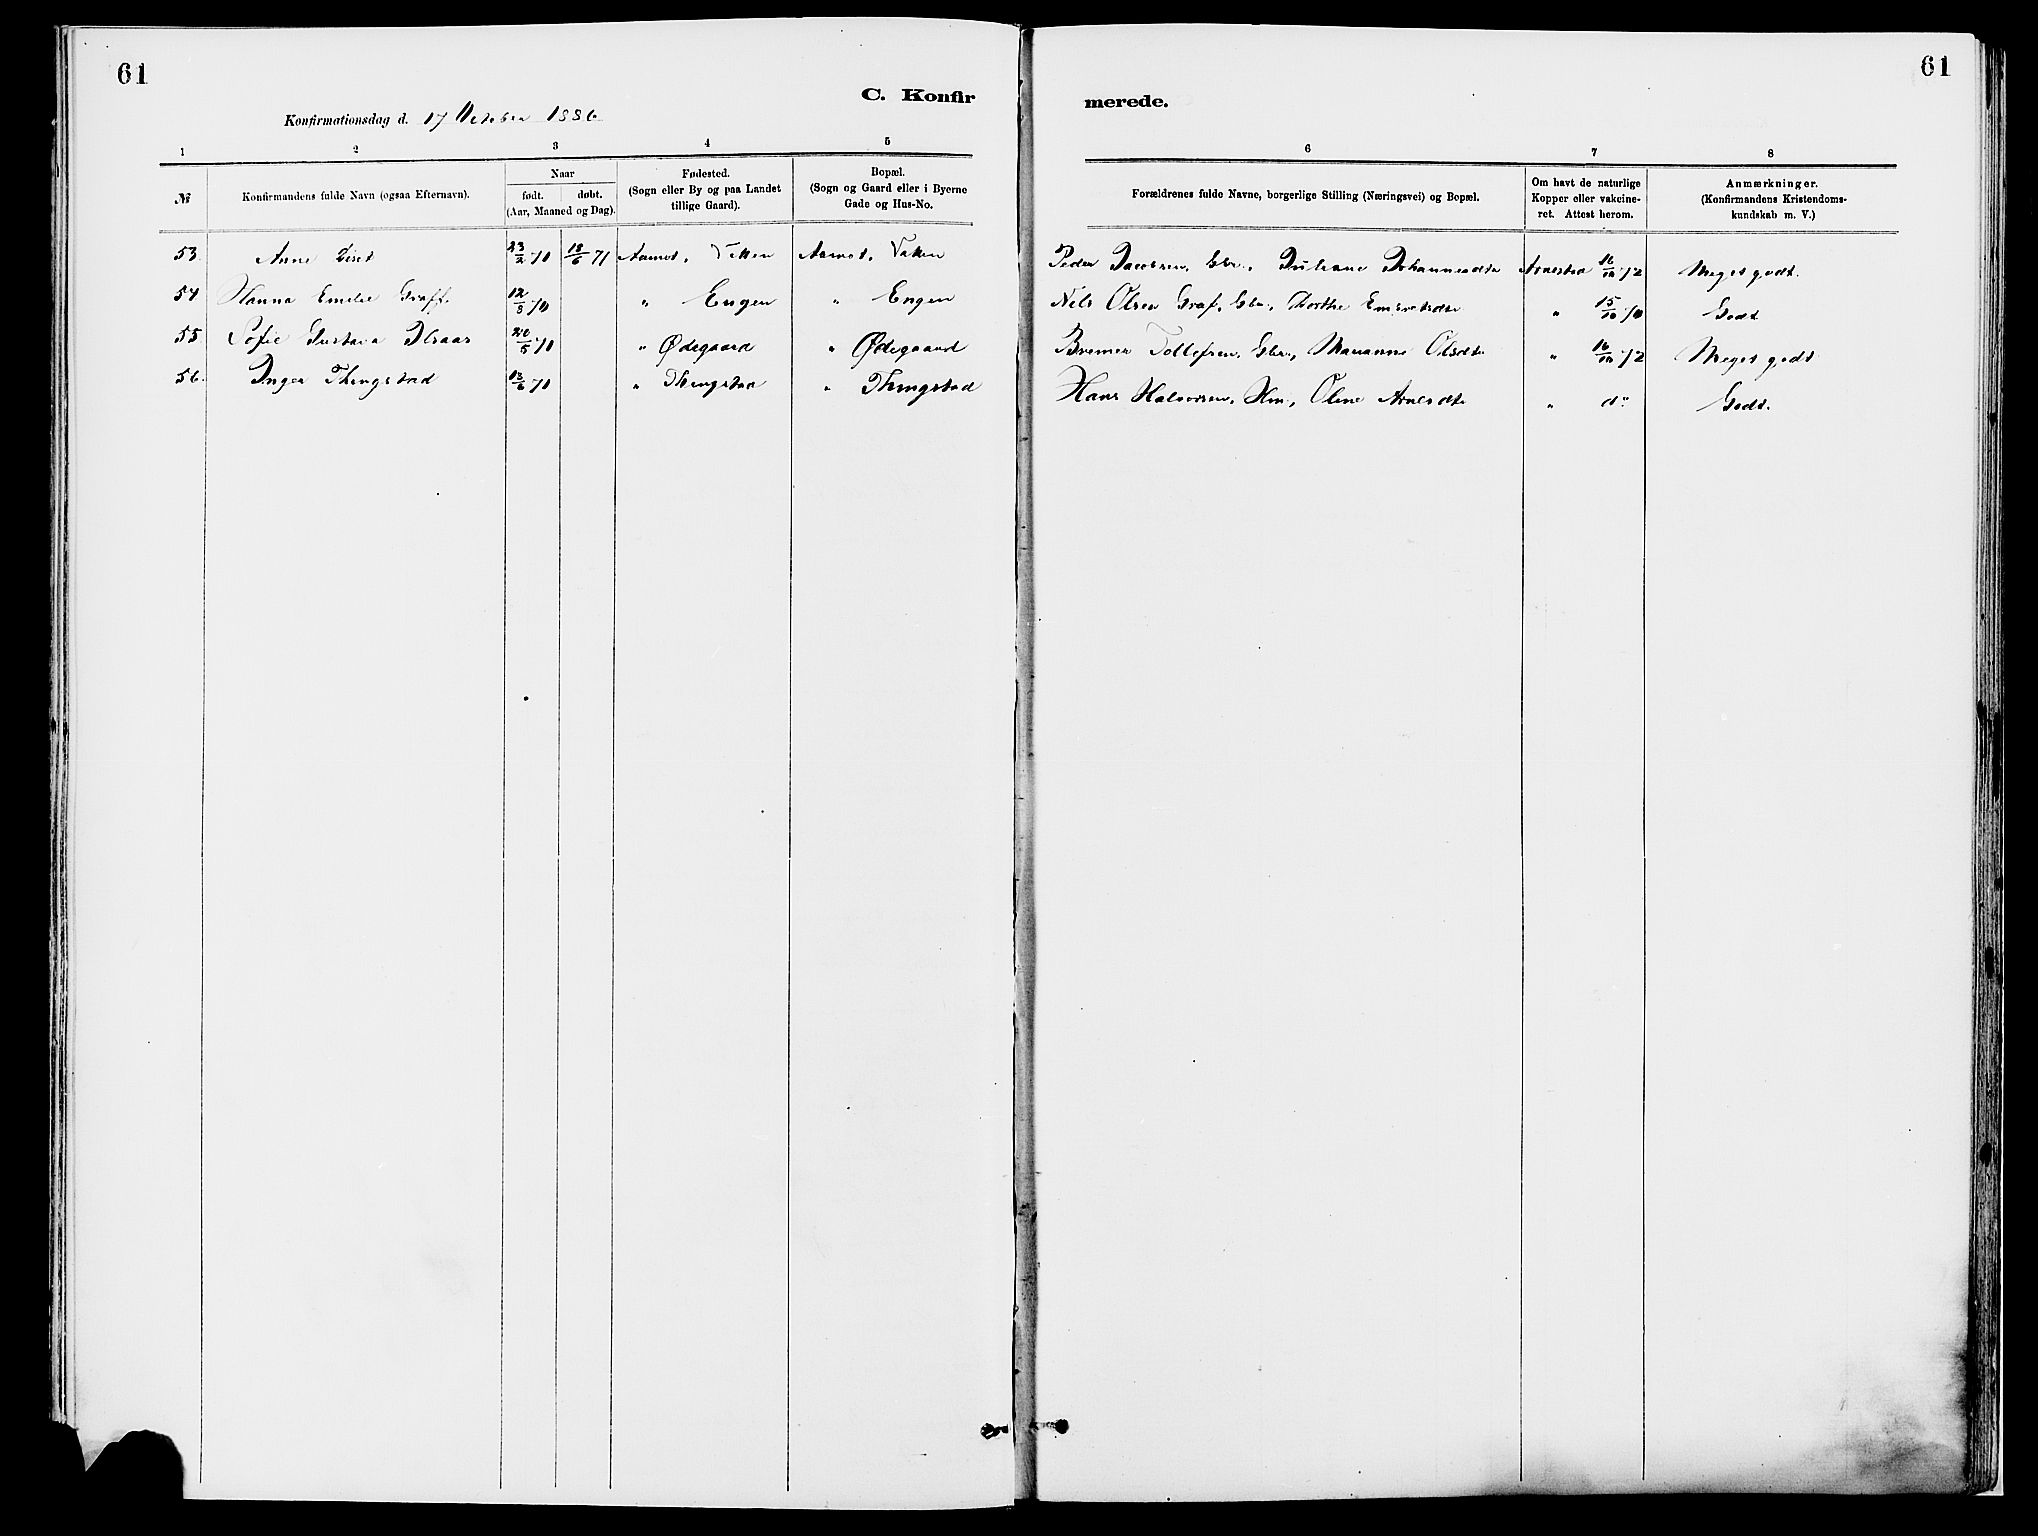 61
61
C. Konfir
merede.
Konfirmationsdag d. 17 October 1886
1 2 3 4 5 6 7 8
№
Konfirmandens fulde Navn (ogsaa Efternavn).
Naar
født. døbt.
(Aar, Maaned og Dag).
Fødested.
(Sogn eller By og paa Landet
tillige Gaard).
Bopæl.
(Sogn og Gaard eller i Byerne
Gade og Hus-No.
Forældrenes fulde Navne, borgerlige Stilling (Næringsvei) og Bopæl.
Om havt de naturlige
Kopper eller vakcine-
ret. Attest herom.
Anmærkninger.
(Konfirmandens Kristendoms-
kundskab m. V.)
53. Anne 23/2 70 18/6 71 Aamot, Aamot, Peder Jacobsen, Gbr., Juliane Johannesdtr 16/10 72 Meget godt.
54 Hanna Emilie Graff. 12/8 70 " Engen " Engen Nils Olsen Graf, Gbr., Dorthe " 15/10 70 Godt
55 Sofie Gustava 5 70 " Ødegaard " Ødegaard Tollefsen, Gbr., Marianne Olsdtr " 16/10 72 Meget godt
56. Inger Thingstad 13/6 70 " Thingstad " Thingstad Hans Halvorsen, Hm., Oline Arnesdtr " do Godt.